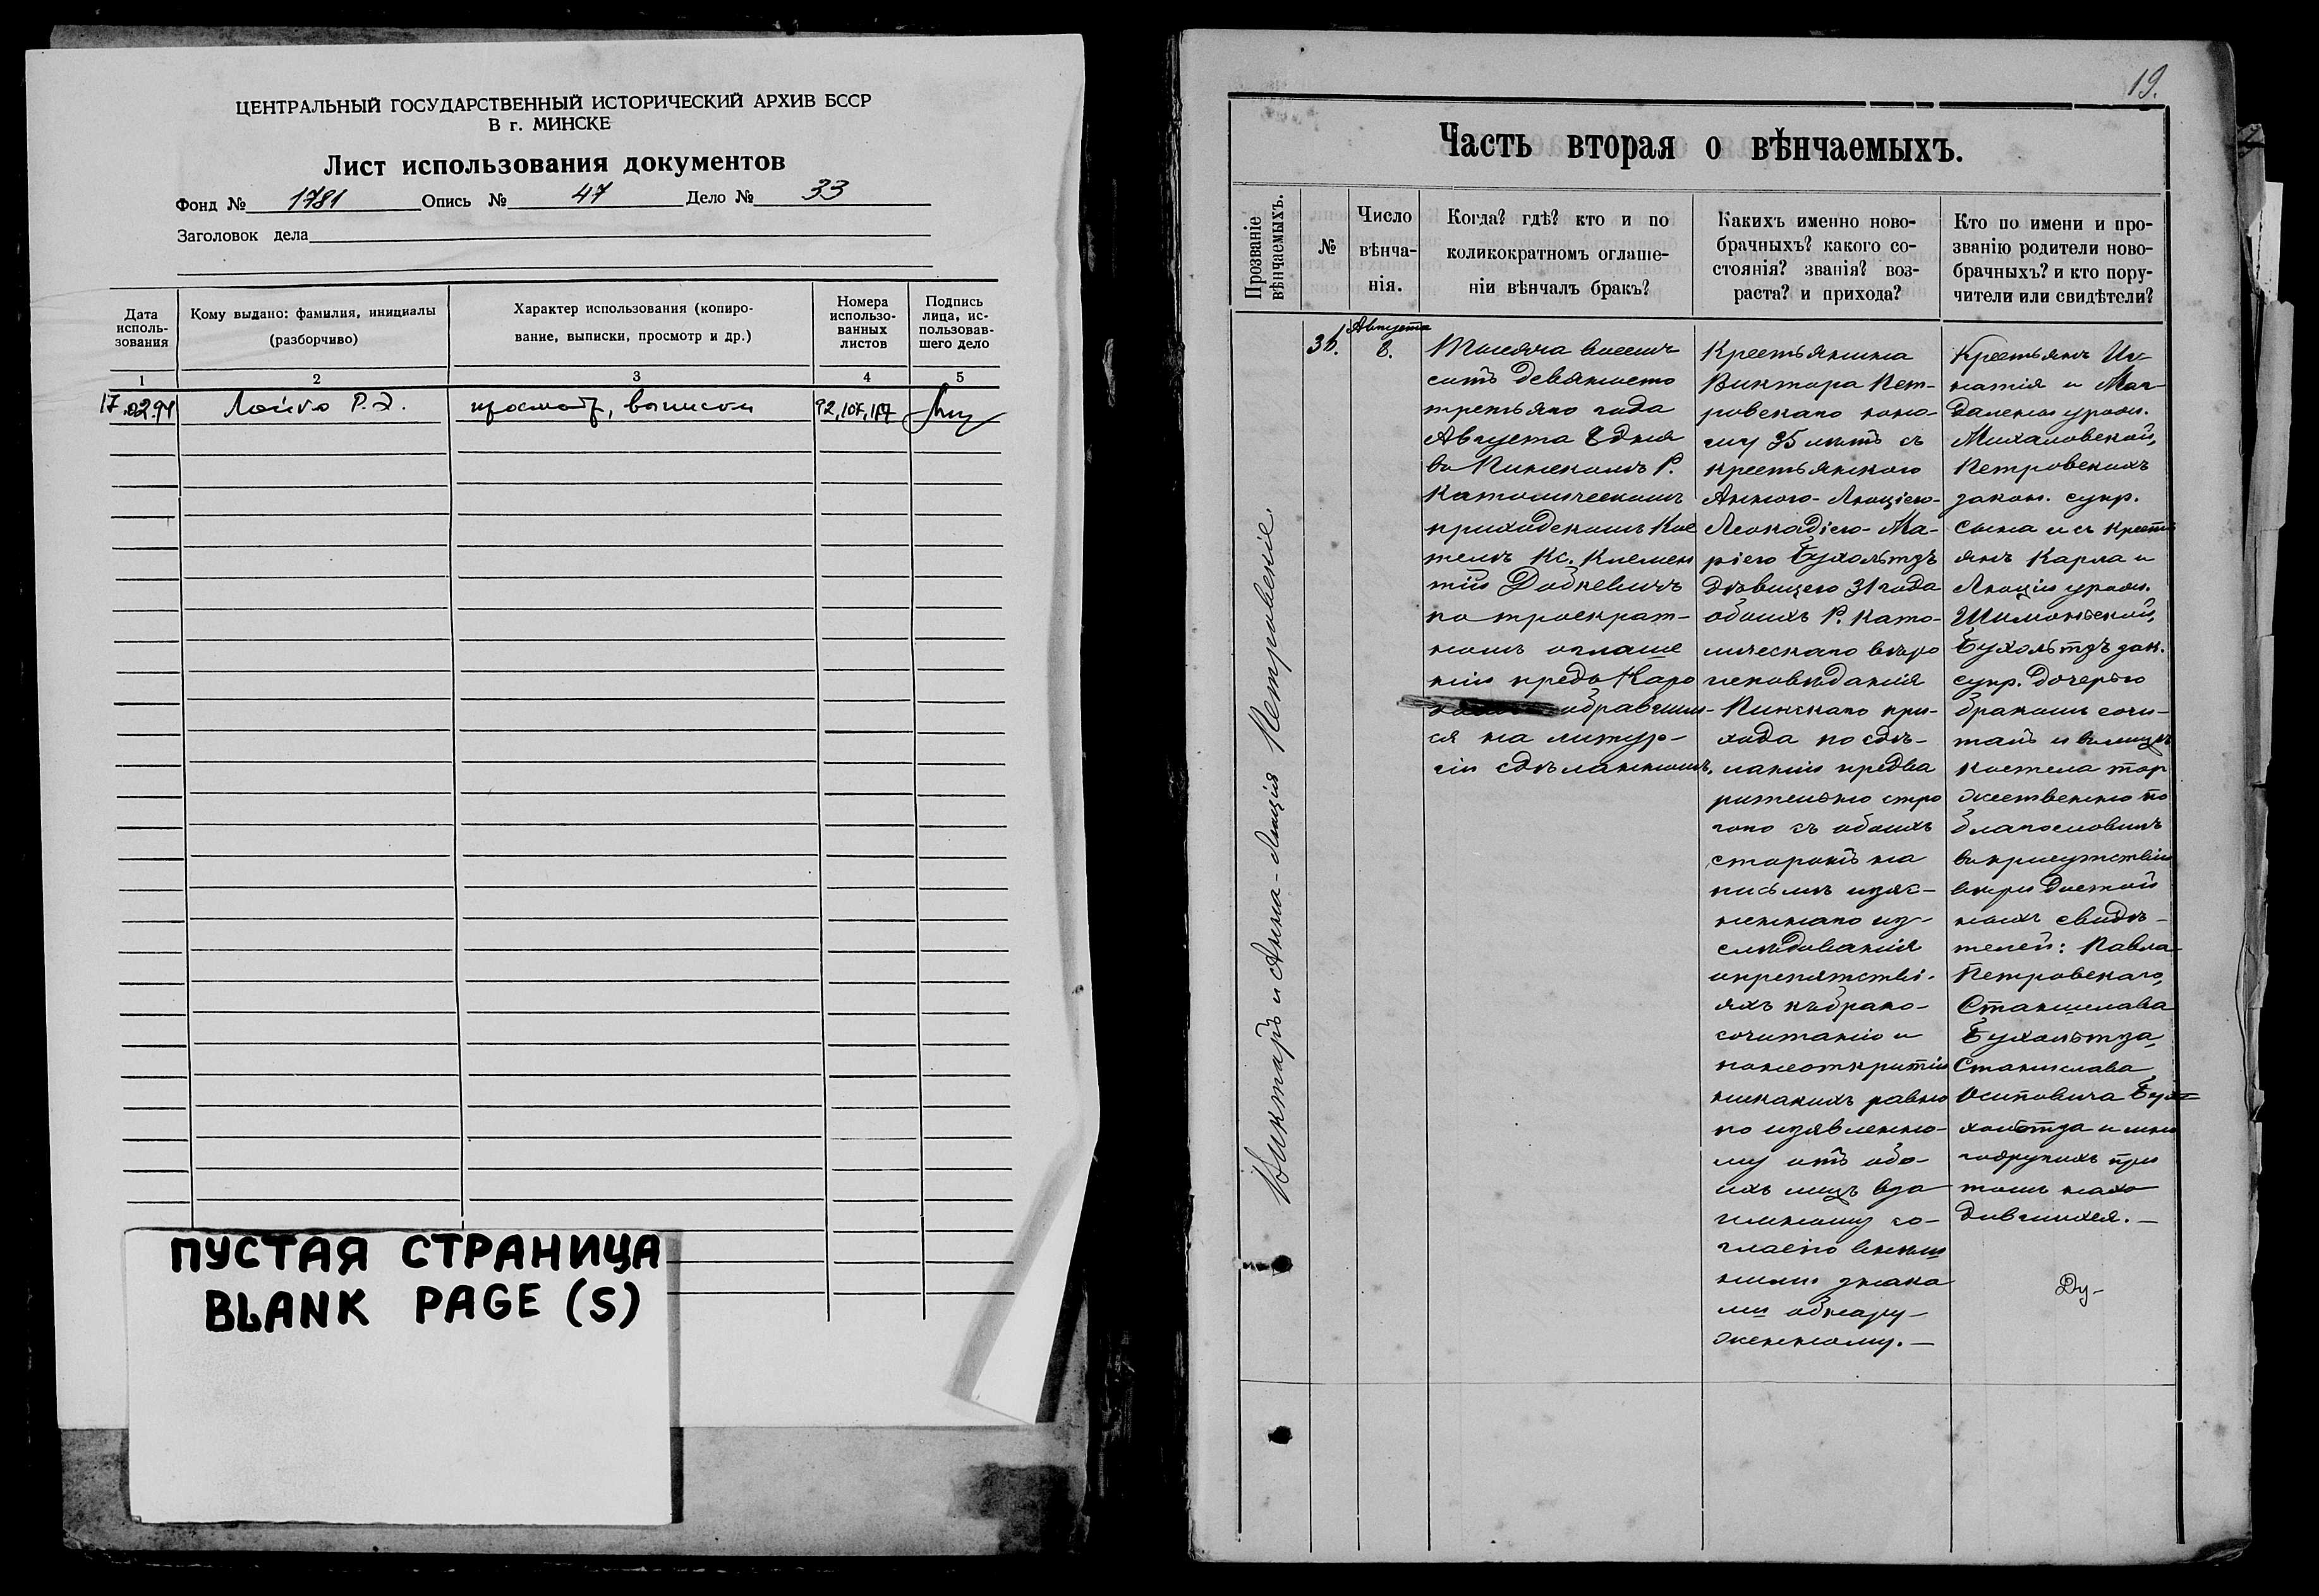 ЦЕНТРАЛЬНЫЙ ГОСУДАРСТВЕННЫЙ ИСТОРИЧЕСКИЙ АРХИВ БССР
В г. МИНСКЕ
Лист использования документов
Фонд № 1781 Опись № 47 Дело № 33
Заголовок дела
Дата исполь-зования
Кому выдано: фамилия, инициалы (разборчиво)
Характер использования (копиро-вание, выписки, просмотр и др.)
Номера использо-ванных листов
Подпись лица, ис-пользовав-шего дело
1 2 3 4 5
17.02.94 Лойко Р.Э. просмотр, выписки 92, 107,
ПУСТАЯ СТРАНИЦА
BLANK PAGE (S)
19.
Часть вторая о вѣнчаемыхъ.
Прозваніе вѣнчаемыхъ.
№
Число вѣнча-нія.
Когда? гдѣ? кто и по
коликократномъ оглаше-
ніи вѣнчалъ бракъ?
Какихъ именно ново-
брачныхъ? какого со-
стоянія? званія? воз-
раста? и прихода?
Кто по имени и про-
званію родители ново-
брачныхъ? и кто пору-
чители или свидѣтели?
Викторъ и Анна-Люція Петровскіе.
36.
Августа
8.
Тысяча восемь
сотъ девяносто
третьяго года
Августа 8 дня
въ Пинскомъ Р.
Католическомъ
приходскомъ Кос
телѣ Кс. Клемен
тій
по троекрат-
номъ оглаше
ніи предъ Наро
обравшим-
ся на литур-
гіи сдѣланномъ.
Крестьянина
Виктора Пет-
ровскаго юно-
шу 35 лѣтъ съ
крестьянкою
Анною-Люціею-
Леокадіею-Ма-
ріею Бухольтзъ
дѣвицею 31 года
обоихъ Р. Като-
лическаго вѣро
исповѣданія
Пинскаго при-
хода по сдѣ-
ланіи предва
рительно стро
гого съ обоихъ
сторонъ на
письмѣ изяс-
неннаго из-
слѣдованія
опрепятстві-
яхъ къ брако-
сочитанію и
понеоткрытіи
никакихъ равно
по изявленно-
му отъ обо-
ихъ лицъ вза
имному со-
гласію внѣш
ними знака
ми обнару-
женному.—
Крестьянъ Иг
натія и Маг-
далены урожд.
Михаловской,
Петровскихъ
закон. супр.
сына и съ крестъ
янъ Карла и
Люціи урожд.
Шимонской,
Бухольтзъ зак.
супр. дочерью
бракомъ сочи-
талъ и влицѣ
костела тор
жественно по
благословилъ
въ присутствіи
вѣри достой
ныхъ свидѣ-
телей: Павла
Петровскаго,
Станислава
Бухольтза,
Станислава
Осиповича Бу-
хольтза и мно
годругихъ при
томъ нахо
дившихся.—